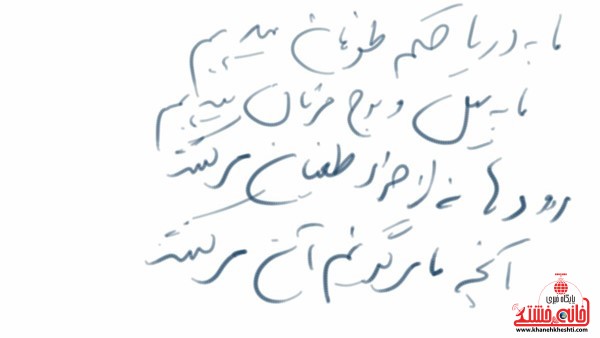 ما به دریا حکم طوفان میدهیم
ما به سیل و موج فرمان میدهیم
رودها نه از خود طغیان میکنند
آنچه ما میگوئیم آن میکنند
پایگاه خبری
خانه خشتی
www.khanehkheshti.com